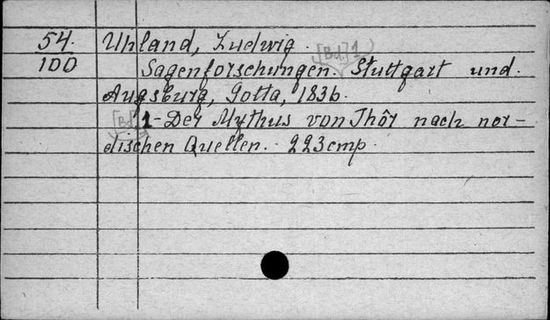 54. Uhland, Ludwig. [Bd.] 1
100 Sagenforschungen. Stuttgart und
Augsburg, Gotta, 1836.
[Bd.] 1 - Der Mythus von Thôr nach nor-
dischen Quellen. 223 cmp.